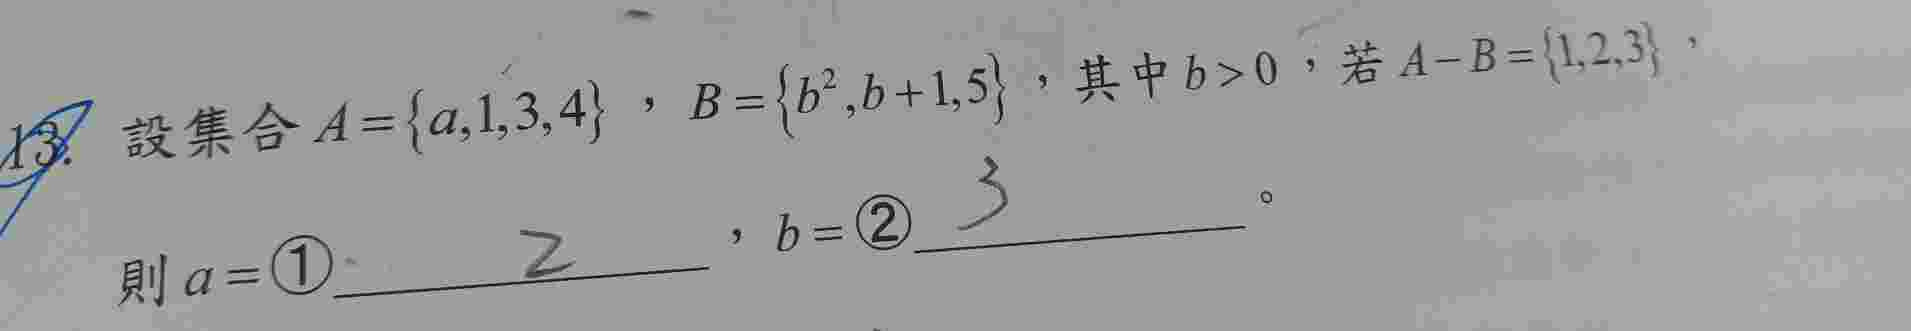 13. 設集合 A={a,1,3,4}，B={b²,b+1,5}，其中 b>0，若 A−B={1,2,3}，
則 a=① 2，b=② 3。